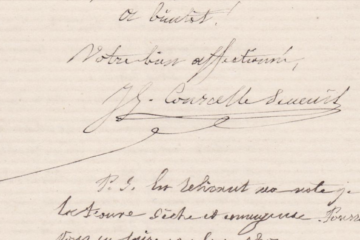 à bientôt!
Votre bien affectionné,
J. G. Courcelle Seneuil
P. S. En relisant ma note je
la trouve sèche et ennuyeuse. Pourrez